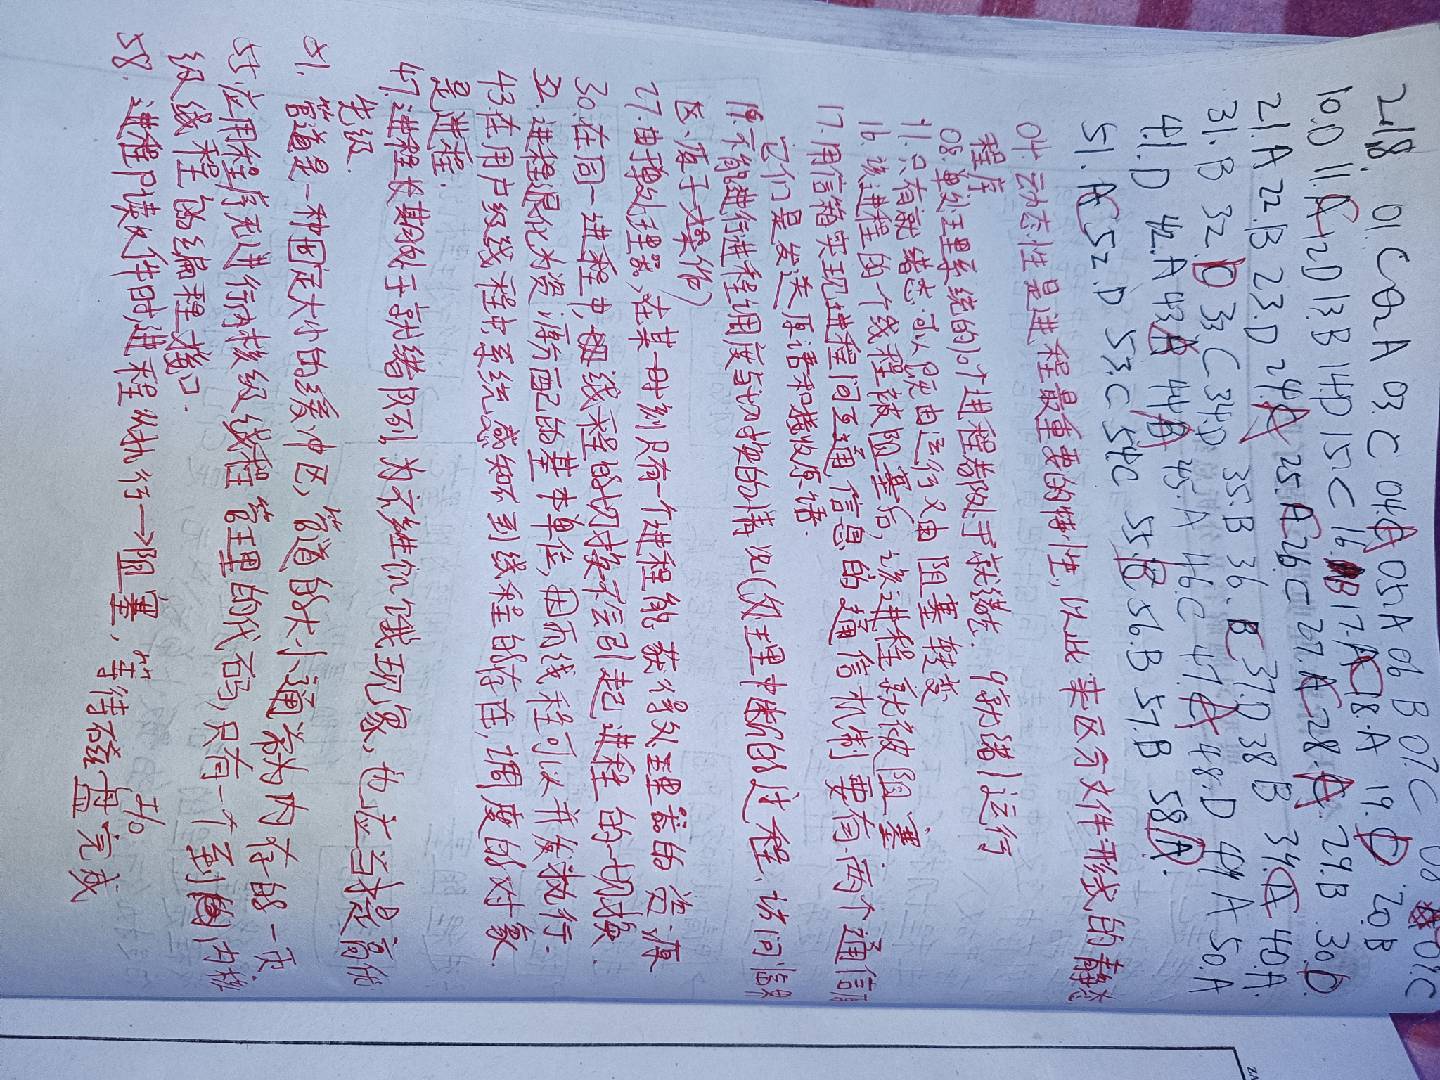 2.1.8. 01.C 02 A 03. C 04. A 05. A 06 B 07. C 08 09. C
10.D 11. C 12D 13. B 14. D 15. C 16. B 17. A C 18. A 19. D 20. B
21. A 22. B 23. D 24. A 25. A C 26. C 27. A C 28 A 29. B 30. D
31. B 32. D 33. C 34. D 35. B 36. C 37. D 38 B 39. C 40. A
41. D 42. A 43. A 44 B 45. A 46. C 47. A 48. D 49 A 50. A
51. A C 52. D 53. C 54C 55. B 56. B 57. B 58 A.
04. 动态性是进程最重要的特性, 以此来区分文件形式的静态
程序
08. 单处理系统的10个进程都处于就绪态. 9就绪1运行
11. 只有就绪态可以既由运行又由阻塞转变
16. 该进程的一个线程被阻塞后, 该进程就被阻塞.
17. 用信箱实现进程间互通信息的通信机制要有两个通信原
它们是发送原语和接收原语.
19. 不能进行进程调度与切换的情况(处理中断的过程、访问临界
区、原子操作)
27. 由于单处理器, 在某一时刻只有一个进程能获得处理器的资源
30. 在同一进程中, 线程的切换不会引起进程的切换
32. 进程退化为资源分配的基本单位, 因而线程可以并发执行.
43. 在用户级线程中, 系统感知不到线程的存在, 调度的对象
是进程.
47. 进程长期处于就绪队列, 为不产生饥饿现象, 也应当提高优
先级.
51. 管道是一种固定大小的缓冲区, 管道的大小通常为内存的一页.
55. 应用程序无进行内核级线程管理的代码, 只有一个到内核
级线程的编程接口.
58. 进程P读文件时, 进程从执行→阻塞, 等待磁盘I/O完成